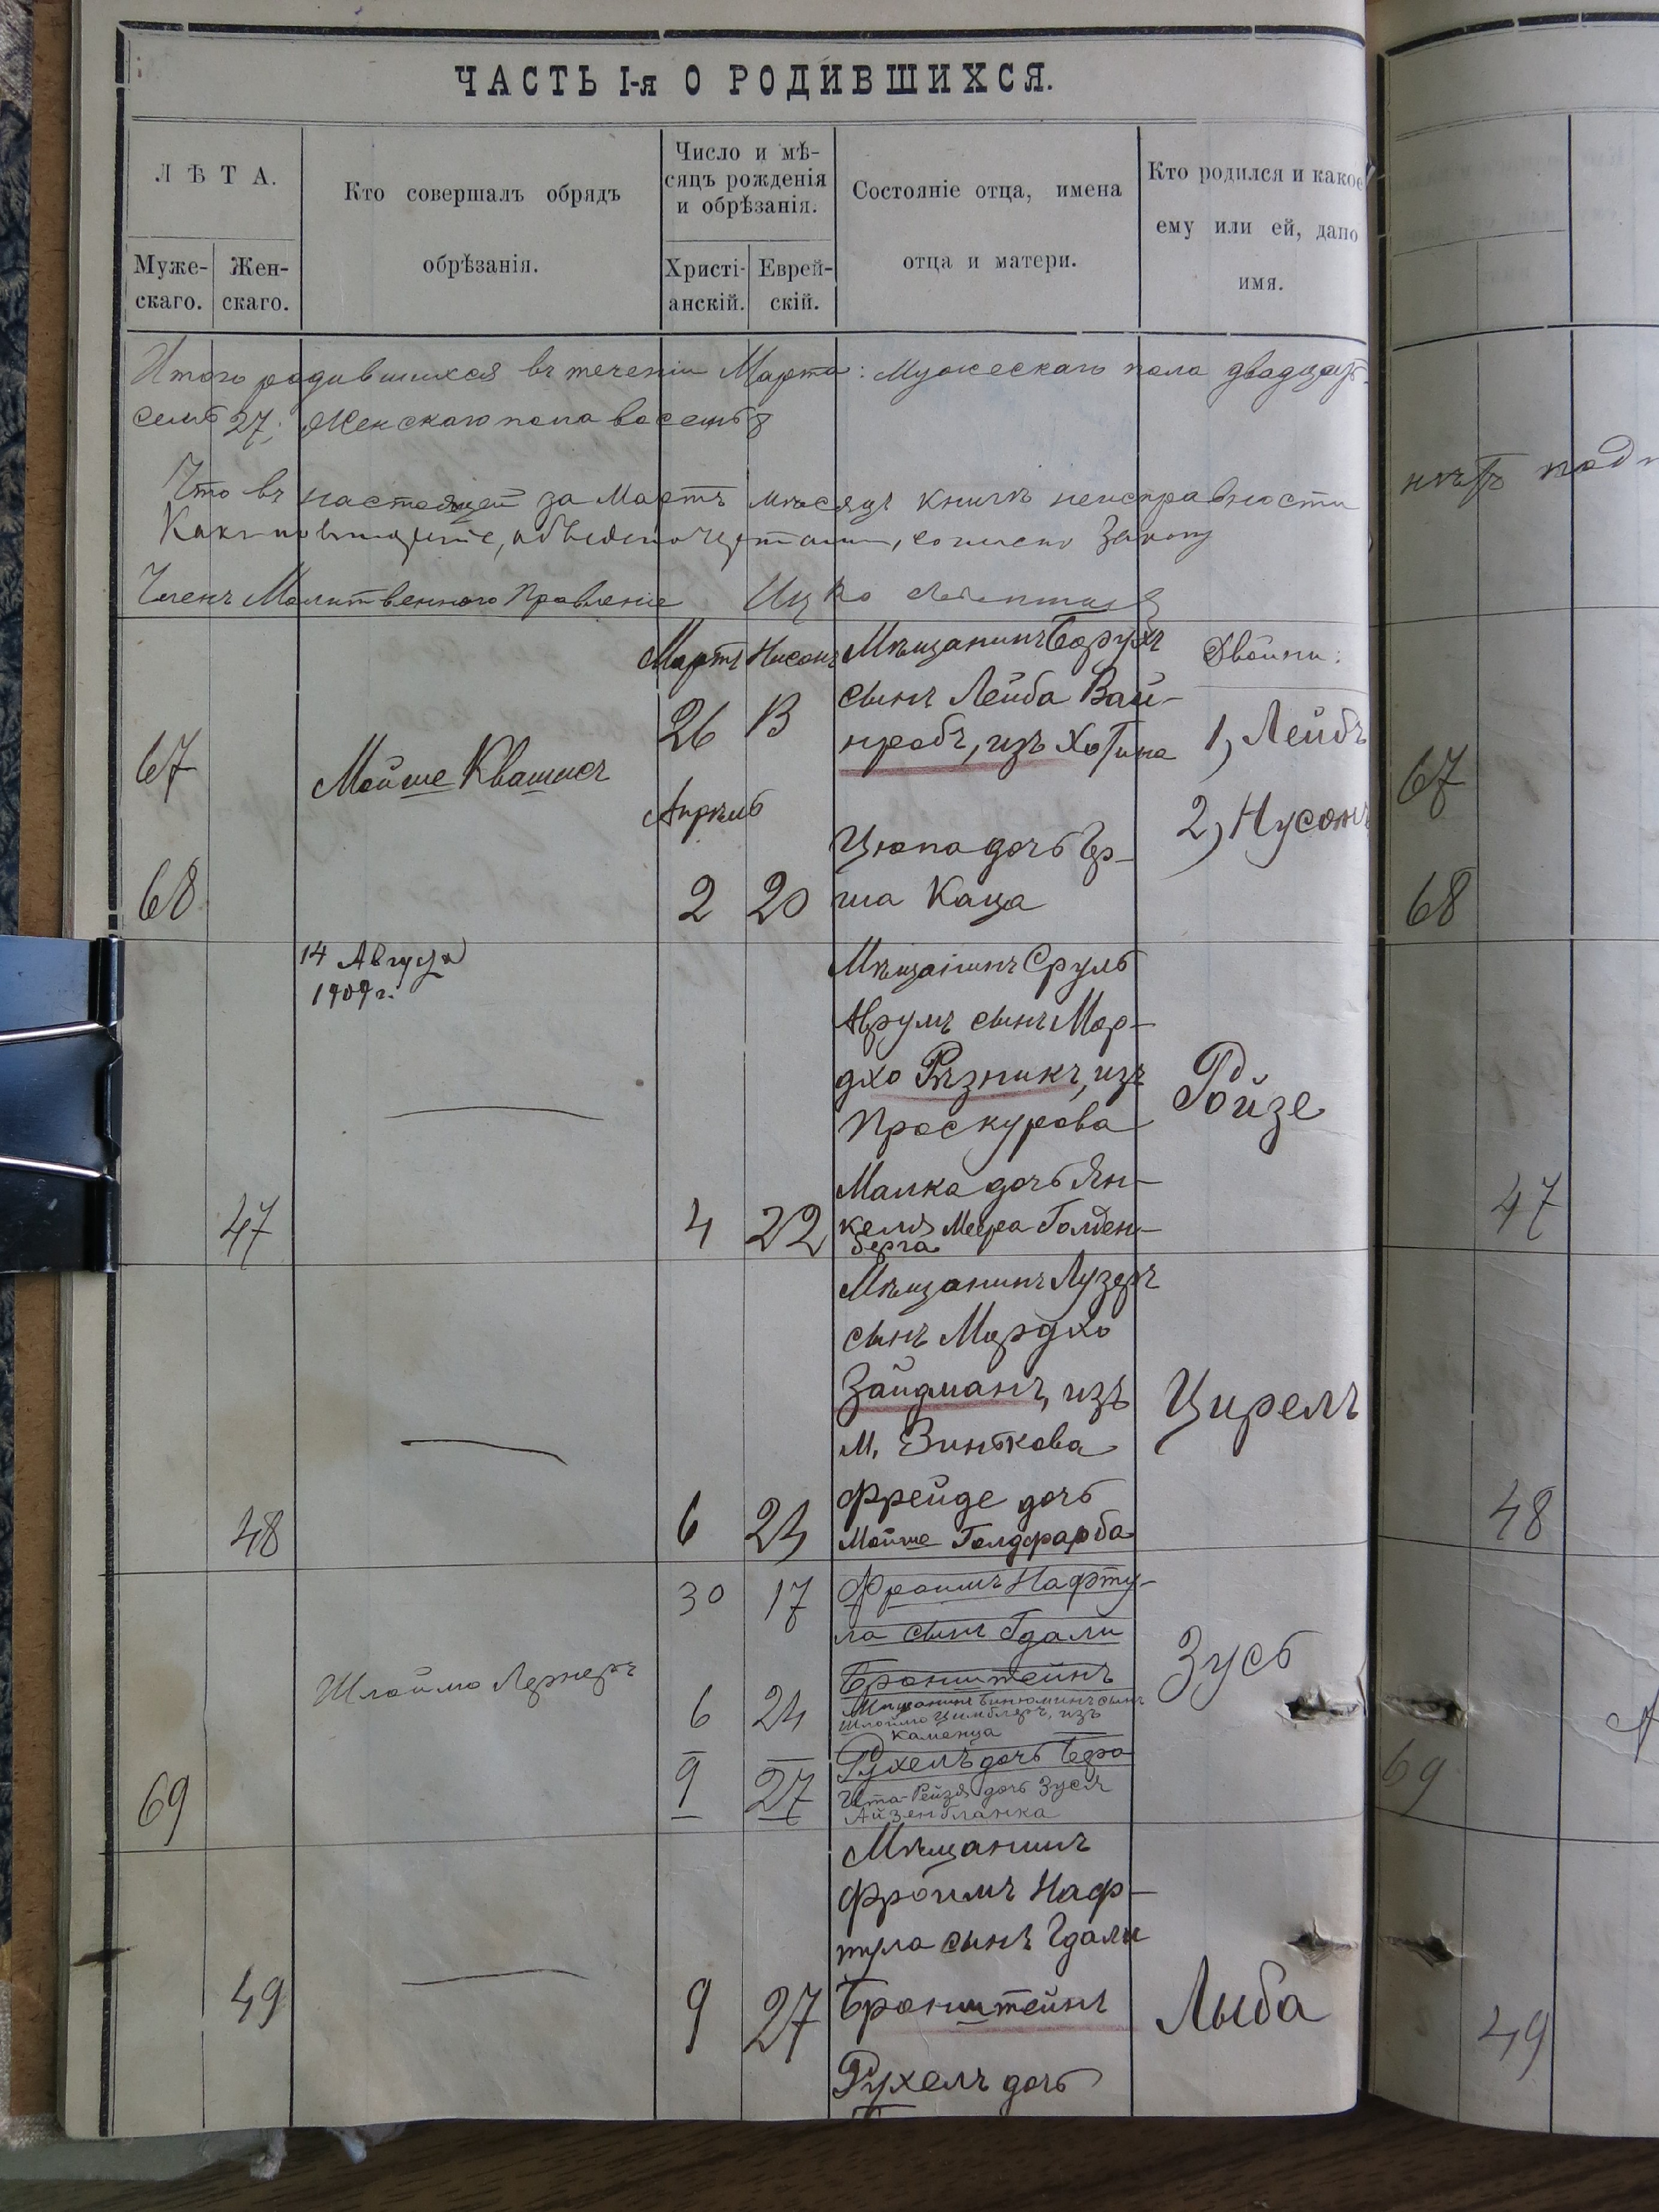 ЧАСТЬ I-я О РОДИВШИХСЯ.
ЛѢТА.
Муже-
скаго.
Жен-
скаго.
Кто совершалъ обрядъ
обрѣзанія.
Число и мѣ-
сяцъ рожденія
и обрѣзанія.
Христі-
анскій.
Еврей-
скій.
Состояніе отца, имена
отца и матери.
Кто родился и какое
ему или ей, дано
имя.
Итого родившихся въ теченіи Марта: Мужескаго пола двадцать
семь 27; Женскаго пола восемь 8
Что въ настоящей за Мартъ мѣсяцъ книгѣ неисправности
согласно Закону
Членъ Молитвеннаго Правленіе Ицко
67
68
Мойше Квашнеръ
Мартъ Нисонъ
26 13
Апрѣль
2 20
Мѣщанинъ Борухъ
сынъ Лейба Вай-
нробъ, изъ Хотина
Цюпа дочь Ер-
ша Каца
Двойни:
1, Лейбъ
2, Нусонъ
67
68
47
14 Августа
1909 г.
4 22
Мѣщанинъ Сруль
Аврумъ сынъ Мор-
дхо Рѣзникъ, изъ
Проскурова
Малка дочь Ян-
келя Меера Голден-
берга
Ройзе
47
48
6 24
Мѣщанинъ Лузеръ
сынъ Мордхо
Зайдманъ, изъ
м. Зинькова
Фрейде дочь
Мойше Голдфарба
Цирелъ
48
69
Шлоймо Лернеръ
30 17
6 24
9 27
Фроимъ Нафту-
ла сынъ Гдали
Бронштейнъ
Мѣщанинъ Бинюминъ сынъ
Шлоймо Цимблеръ, изъ
Каменца
Рухелъ дочь Бера
Ита-Рейзя дочь Зуся
Айзенбланка
Зусь
69
49
9 27
Мѣщанинъ
Фроимъ Наф-
тула сынъ Гдали
Бронштейнъ
Рухелъ дочь
Лыба
49